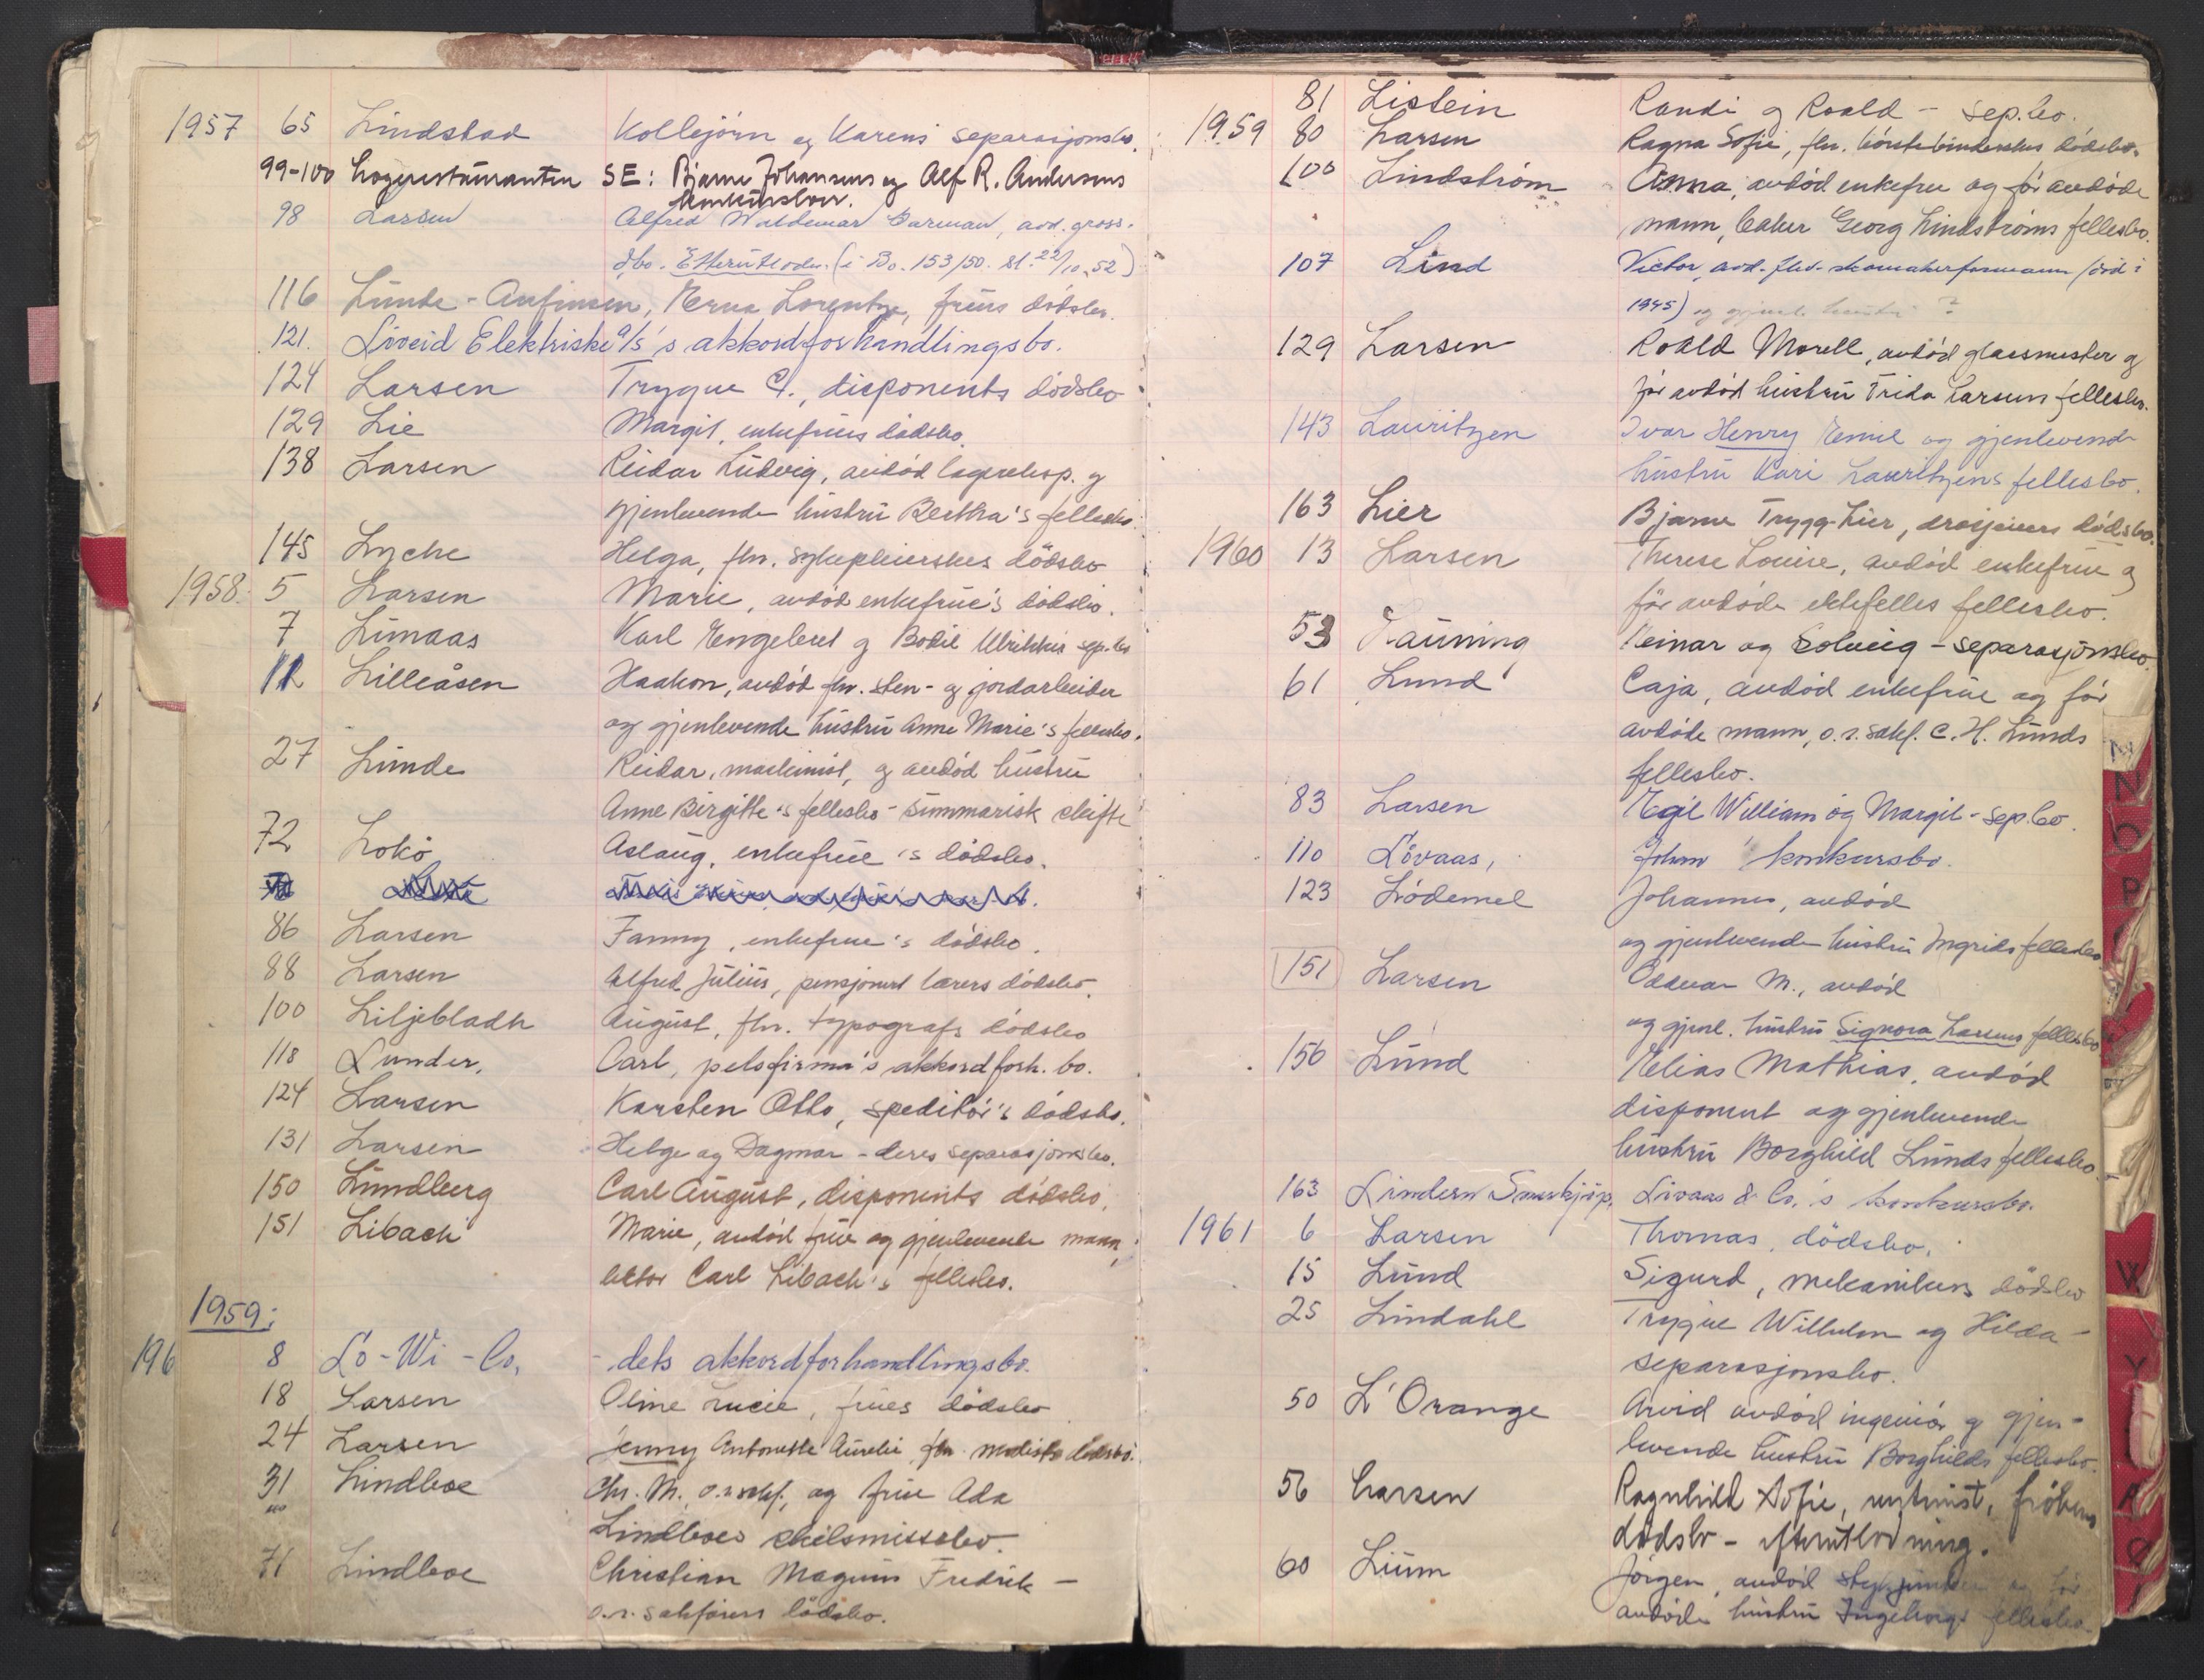 1957 65 Lindstad Kollbjörn og Karens separasjonsbo.
99-100 Logerestauranten SE: Bjarne Johansens og Alf R. Andersens
konkursboer.
98 Larsen Alfred Waldemar Garman, avd. gross.
d.bo. Etterutlodn. (i Bo. 153/50. sl. 22/10.52)
116 Lunde-Anfinsen, Erna Lorentze, frues dödsbo.
121. Löveid Elektriske A/S's akkordforhandlingsbo.
124 Larsen Trygve C., disponents dödsbo
129 Lie Margit, enkefrues dödsbo.
138 Larsen Reidar Ludvig, avdöd lagereksp. og
gjenlevende hustru Bertha's fellesbo.
145 Lyche Helga, fhv. sykepleierskes dödsbo
1958. 5 Larsen Marie, avdöd enkefrue's dödsbo.
7 Limaas Karl Engebret og Bodil Ulrikkes sep.bo
12 Lilleåsen Haakon, avdöd fhv. sten- og jordarbeider
og gjenlevende hustru Anne Marie's fellesbo.
27 Lunde Reidar, maskinist, og avdöd hustru
Anne Birgitte's fellesbo - summarisk skifte
72 Lokö Aslaug, enkefrue's dödsbo.
86 Larsen Fanny, enkefrue's dödsbo.
88 Larsen Alfred Julius, pensjonert lærers dödsbo.
100 Liljebladh August, fhv. typografs dödsbo
118 Lunder, Carl, pelsfirma's akkordforh. bo.
124 Larsen Karsten Otto, speditör's dödsbo.
131 Larsen Helge og Dagmar - deres separasjonsbo.
150 Lundberg Carl August, disponents dödsbo.
151 Libach Marie, avdöd frue og gjenlevende mann,
lektor Carl Libach's fellesbo.
1959:
196 8 Lö-Wi-Co. - dets akkordforhandlingsbo.
18 Larsen Oline Lucie, frues dödsbo
24 Larsen Jenny Antonette Aurelie, fhv. modists dödsbo.
31 Lindboe Chr. M. o.r.sakf., og frue Ada
Lindboes skilsmissebo.
71 Lindboe Christian Magnus Fredrik -
o.r.sakförers dödsbo.
81 Listein Randi og Roald - sep.bo.
1959 80 Larsen Ragna Sofie, fhv. börstebinderskes dödsbo.
100 Lindström Anna, avdöd enkefru og för avdöde
mann, baker Georg Lindströms fellesbo.
107 Lind Victor, avd. fhv. skomakerformann (död i
1945) og gjenl. hustru ?
129 Larsen Roald Morell, avdöd glassmester og
för avdöd hustru Frida Larsens fellesbo.
143 Lauritzen Ivar Henry Emil og gjenlevende
hustru Kari Lauritzens fellesbo.
163 Lier Bjarne Trygg-Lier, drosjeeiers dödsbo.
1960 13 Larsen Therese Louise, avdöd enkefrue og
för avdöde ektefelles fellesbo.
53 Launing Reinar og Solveig - separasjonsbo.
61 Lund Caja, avdöd enkefrue og för
avdöde mann, o.r.sakf. C. H. Lunds
fellesbo.
83 Larsen Egil William og Margit - sep.bo.
110 Lövaas, John konkursbo.
123 Lödemel Johannes, avdöd
og gjenlevende hustru Ingrids fellesbo
151 Larsen Oddvar M., avdöd
og gjenl. hustru Signora Larsens fellesbo
156 Lund Elias Mathias, avdöd
disponent og gjenlevende
hustru Borghild Lunds fellesbo.
163 Lindern Smørkjøp, Livaas & Co.'s konkursbo.
1961 6 Larsen Thomas, dödsbo.
15 Lund Sigurd, mekanikers dödsbo
25 Lindahl Trygve Wilhelm og Hilda -
separasjonsbo.
50 L'Orange Arvid avdöd ingeniör og gjen-
levende hustru Borghilds fellesbo.
56 Larsen Ragnhild Sofie, frökens
dödsbo - etterutlodning.
60 Lium Jörgen, avdöd og för
avdöde hustru Ingeborgs fellesbo
N
O
P
W
Y